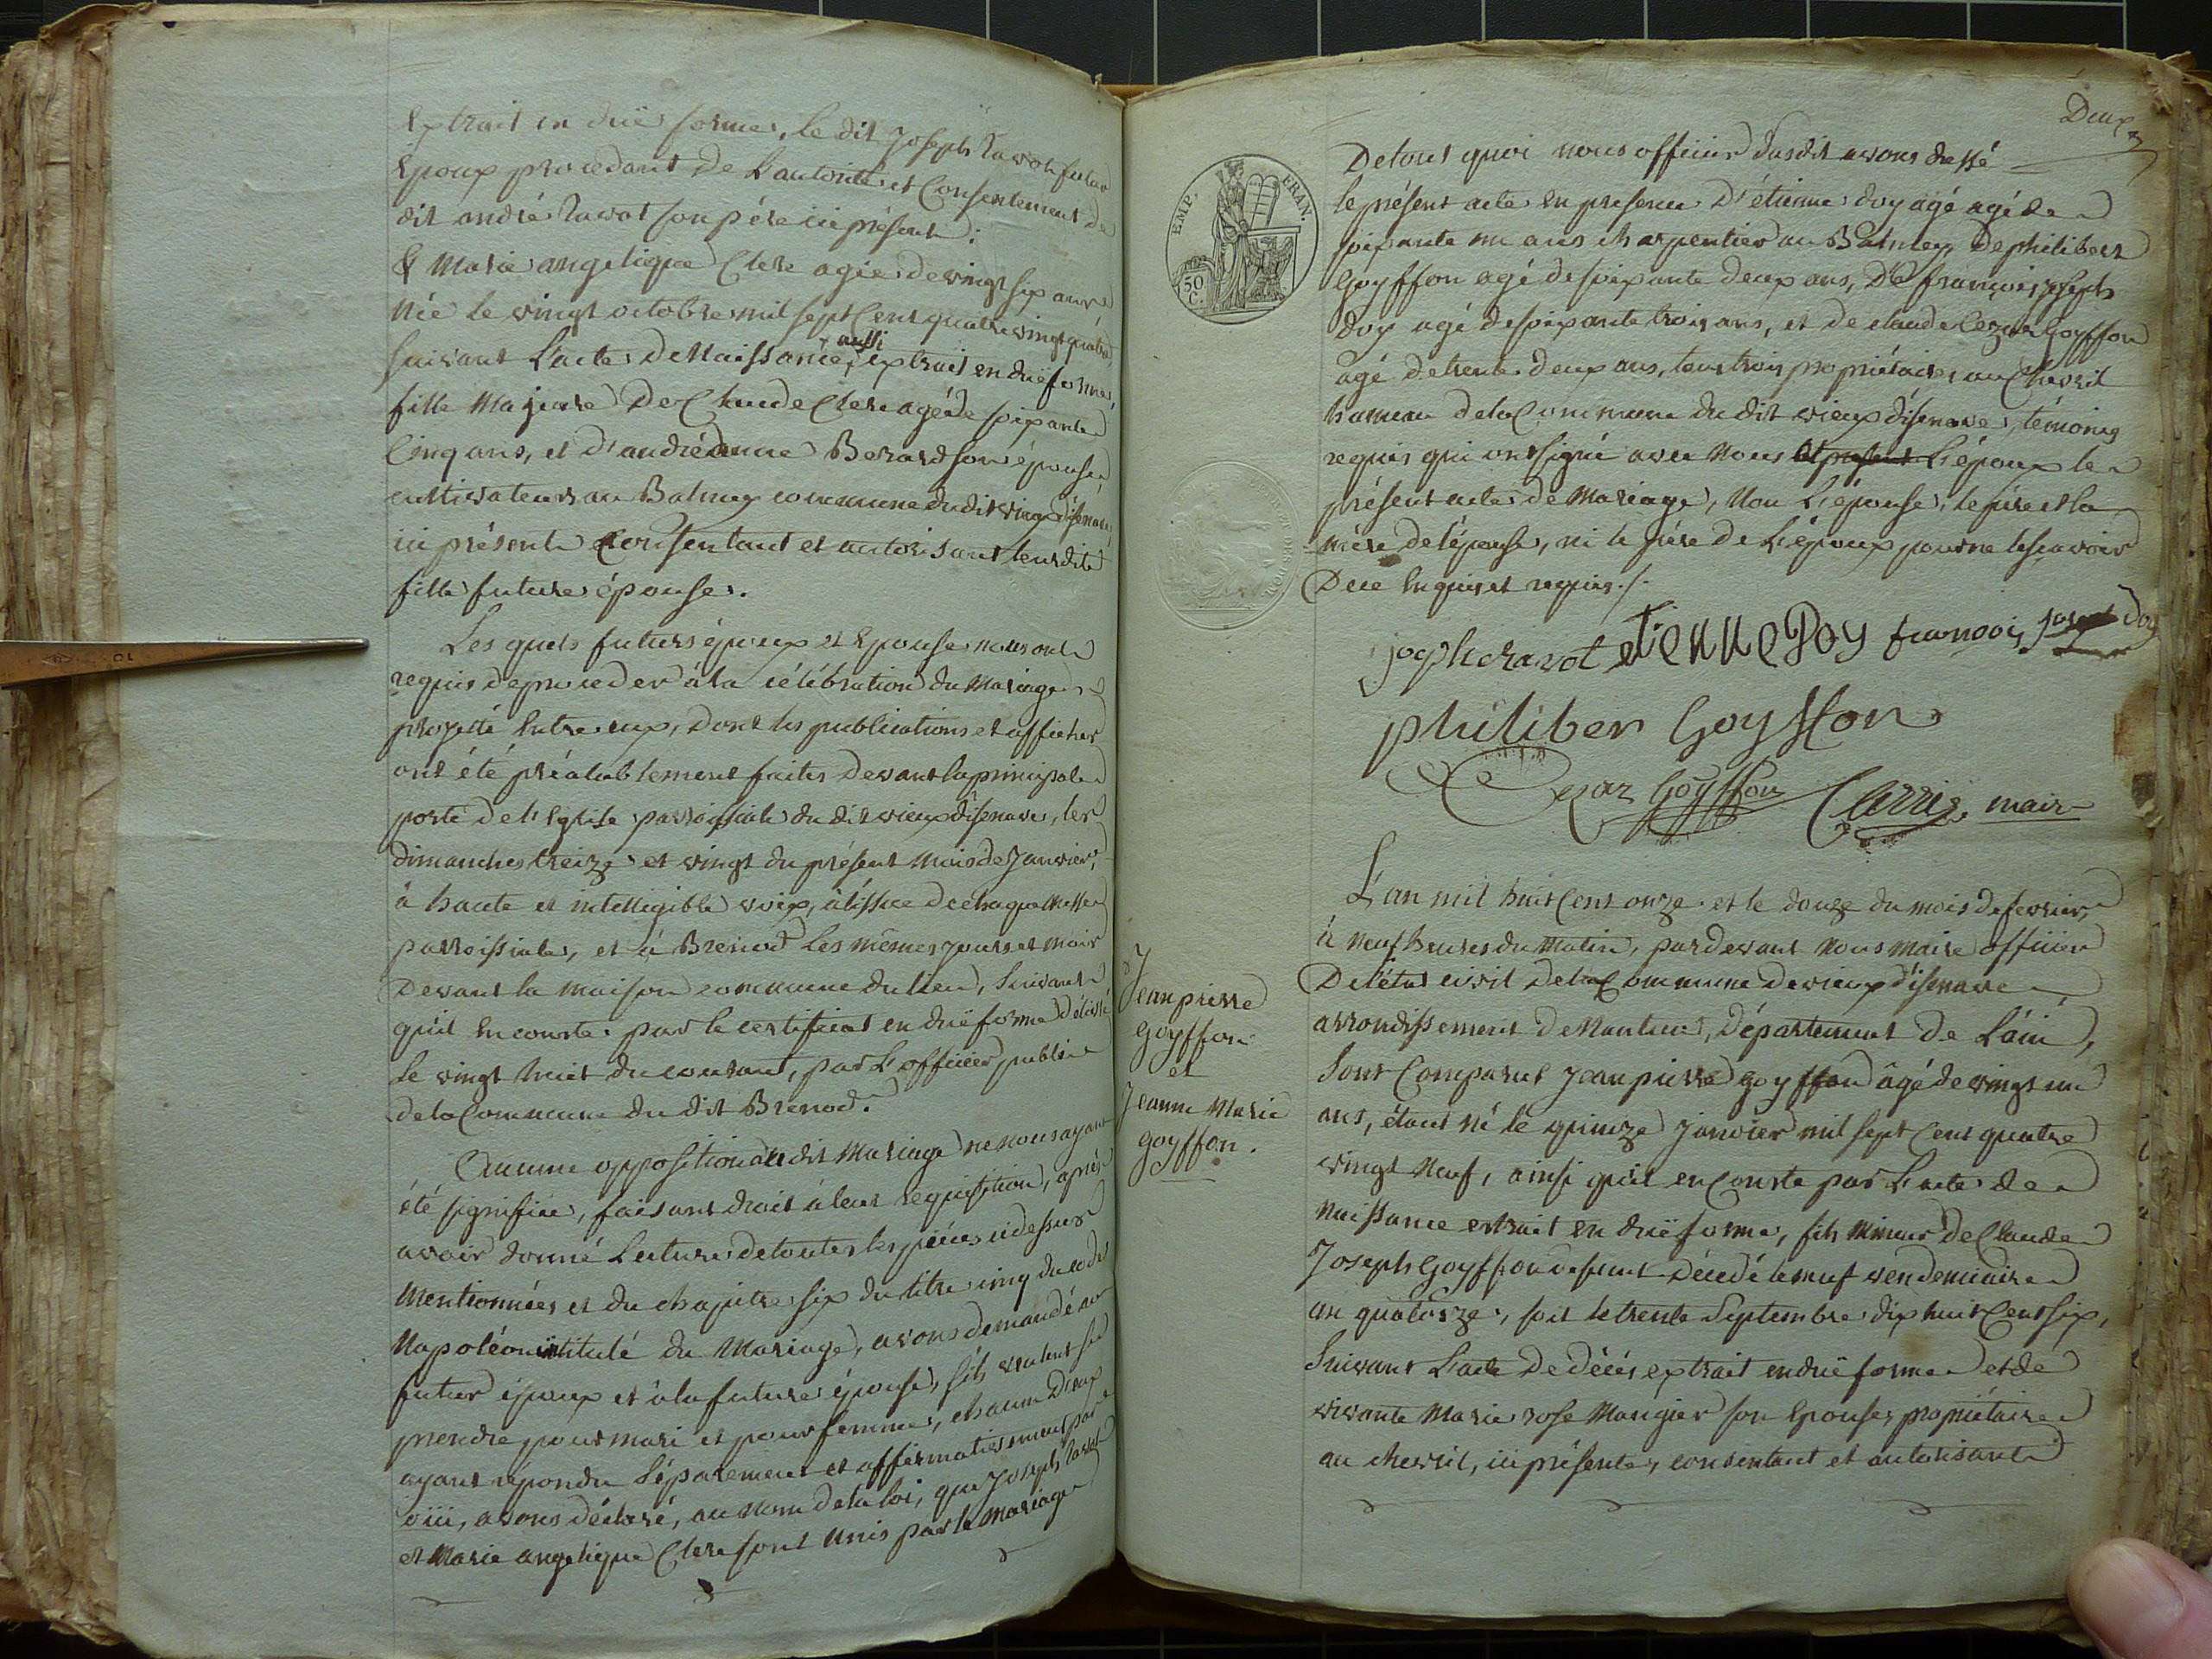 Extrait en duë forme, le dit Joseph Ravot futur
Epoux procedant de L'autorité et Consentement du
dit andré Ravot son père ici présent.
& Marie angelique Clere agée de vingt six ans,
Née le vingt octobre mil sept Cent quatrevingt quatre
suivant L'acte de Naissance, aussi extrait en duë forme,
fille Majeure De Claude Clere agé de soixante
Cinq ans, et d'andréanne Berard son épouse
cultivateurs au Balmay commune du dit vieux d'isenave,
ici présents Consentant et autorisant leurdite
fille future épouse.
Les quels futurs époux et Epouse nous ont
requis de proceder à la célébration du Mariage
projetté Entre eux, Dont les publications et affiches
ont été préalablement faites Devant la principale
porte De l'Eglise parroissiale du dit vieux d'isenave, les
dimanches treize et vingt du présent mois de Janvier,
à haute et intelligible voix, à l'issue de chaque Messe
parroissiale, et à Brenod Les mêmes jours et mois
Devant la maison commune du lieu, suivant
quil En conste par le certificat en duë forme délivré
Le vingt huit du courant, par L'officier public
de la Commune du dit Brenod.
Aucune opposition au dit Mariage ne nous ayant
été signifiée, faisant droit à leur requisition, après
avoir donné Lecture de toutes les pièces ci dessus
Mentionnées et du chapitre six du titre cinq du code
Napoléon intitulé du Mariage, avons demandé au
futur époux et à la future épouse, s'ils veulent se
prendre pour mari et pour femme, chacun D'eux
ayant répondu séparement et affirmativement par
oui, avons déclaré, au Nom de la loi, que Joseph Ravot
et Marie angelique Clere sont unis par le mariage
Deux
De tout quoi nous officier susdit avons dressé
le présent acte en presence D'étienne doy agé agé de
soixante un ans charpentier au Balmay, de philibert
Goyffon agé de soixante deux ans, De françois joseph
doy agé de soixante trois ans, et de claude Cezar Goyffon
agé de trente deux ans, tous trois propriétaires au Chevril
hameau de la Commune du dit vieux d'isenave, témoins
requis qui ont signé avec Nous et present L'époux le
présent acte de Mariage, Non L'épouse, le père et la
mère de l'épouse, ni le père de L'époux pour ne le sçavoir
De ce Enquis et requis ./.
joseph ravot etienne Doy francois joseph doy
philiber Goyffon
Cezar Goyffon Carrier, maire
EMP. FRAN.
50 C.
Jean pierre
goyffon
et
Jeanne Marie
goyffon.
L'an mil huit Cent onze et le douze du mois de fevrier,
à neuf heures du Matin, pardevant Nous Maire officier
De l'état civil de la Commune de vieux d'isenave
arrondissement de Nantua, Département de L'ain,
sont Comparus Jean pierre goyffon âgé de vingt un
ans, étant né le quinze Janvier mil sept Cent quatre
vingt Neuf, ainsi quil en Conste par L'acte de
Naissance extrait en duë forme, fils Mineur de Claude
Joseph Goyffon defunt Décédé le neuf vendemiaire
an quatorze, soit le trente Septembre dix huit Cent six,
Suivant L'acte De décés extrait en duë forme et de
vivante Marie rose Mangier son Epouse, propriétaire
au chevril, ici présente, consentant et autorisant